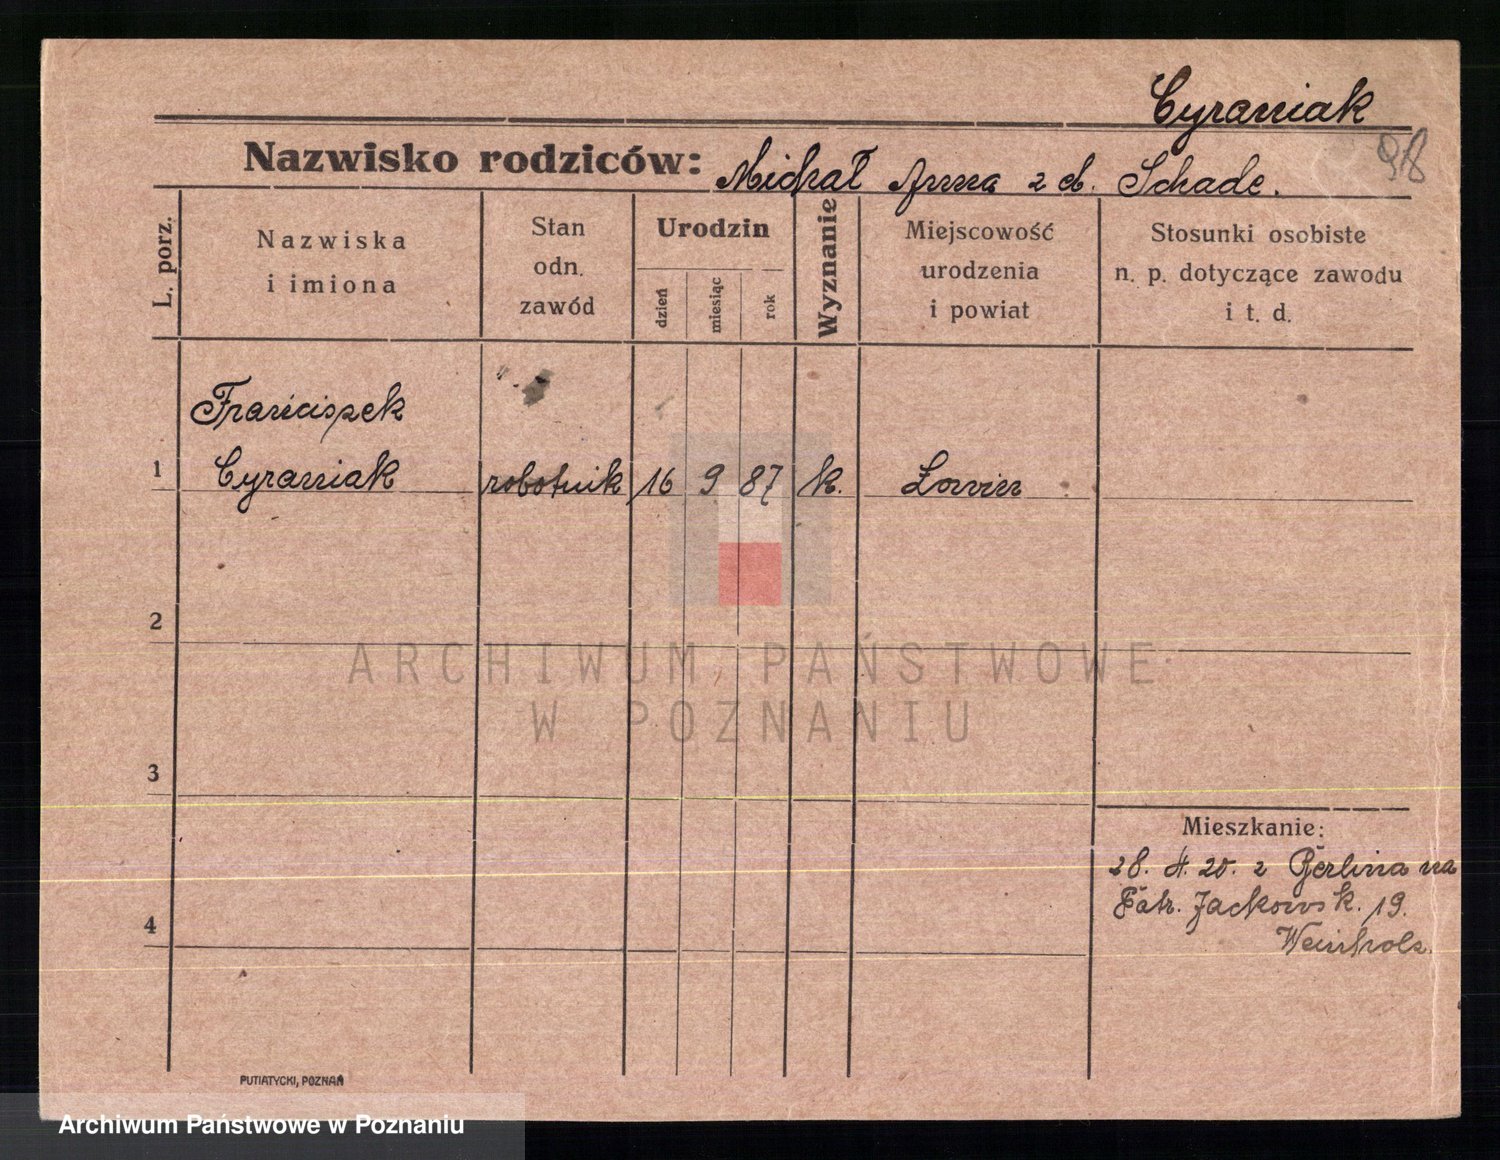 Cyraniak
98
Nazwisko rodziców: Michał Anna z d. Schade.
L. porz.
Nazwiska
i imiona
Stan
odn.
zawód
Urodzin
dzień
miesiąc
rok
Wyznanie
Miejscowość
urodzenia
i powiat
Stosunki osobiste
n. p. dotyczące zawodu
i t. d.
Franciszek
1 Cyraniak robotnik 16 9 87 k. Łowin
2
ARCHIWUM PAŃSTWOWE
W POZNANIU
3
Mieszkanie:
28. 4. 20. z Berlina na
Patr. Jackowsk. 19.
4
Weinholz.
PUTIATYCKI, POZNAŃ
Archiwum Państwowe w Poznaniu